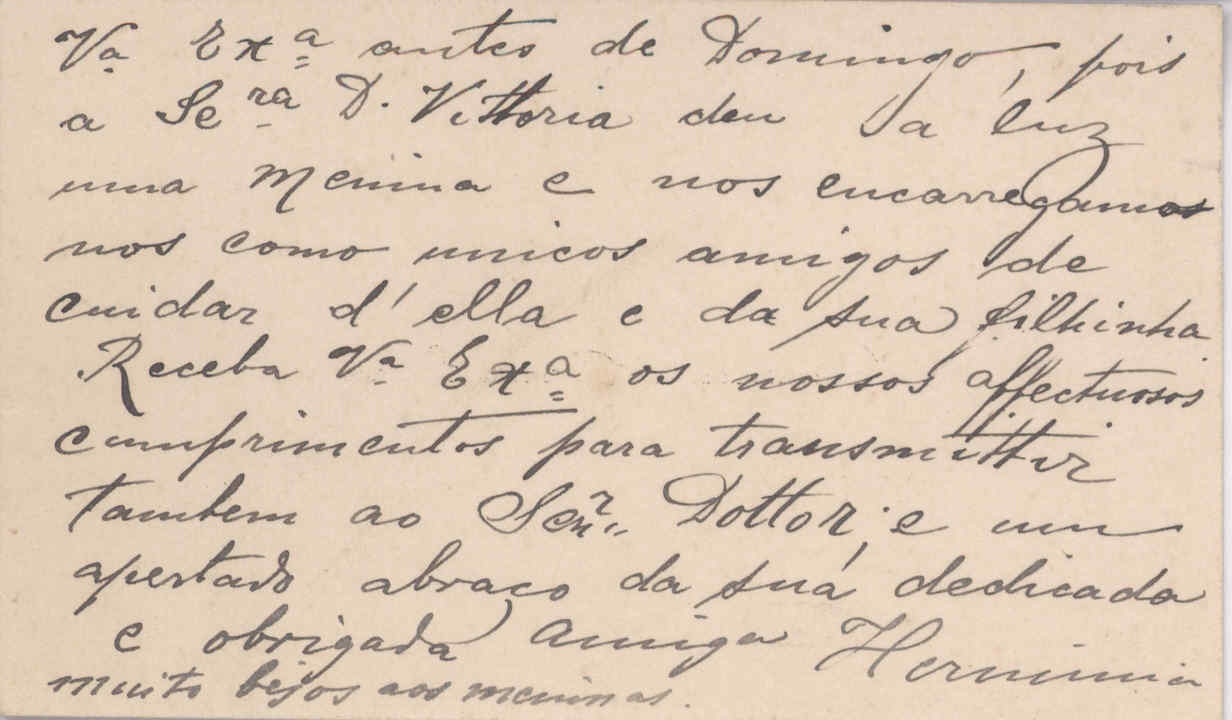 Vª Exª antes de Domingo, pois
a Seʳᵃ D. Vittoria deu a luz
uma menina e nos encarregamos
nos como unicos amigos de
cuidar d'ella e da sua filhinha
Receba Vª Exª os nossos affectuosos
cumprimentos para transmittir
tambem ao Senʳ. Dottor, e um
apertado abraço da sua dedicada
e obrigada amiga Herminia
muito bejos aos meninas.